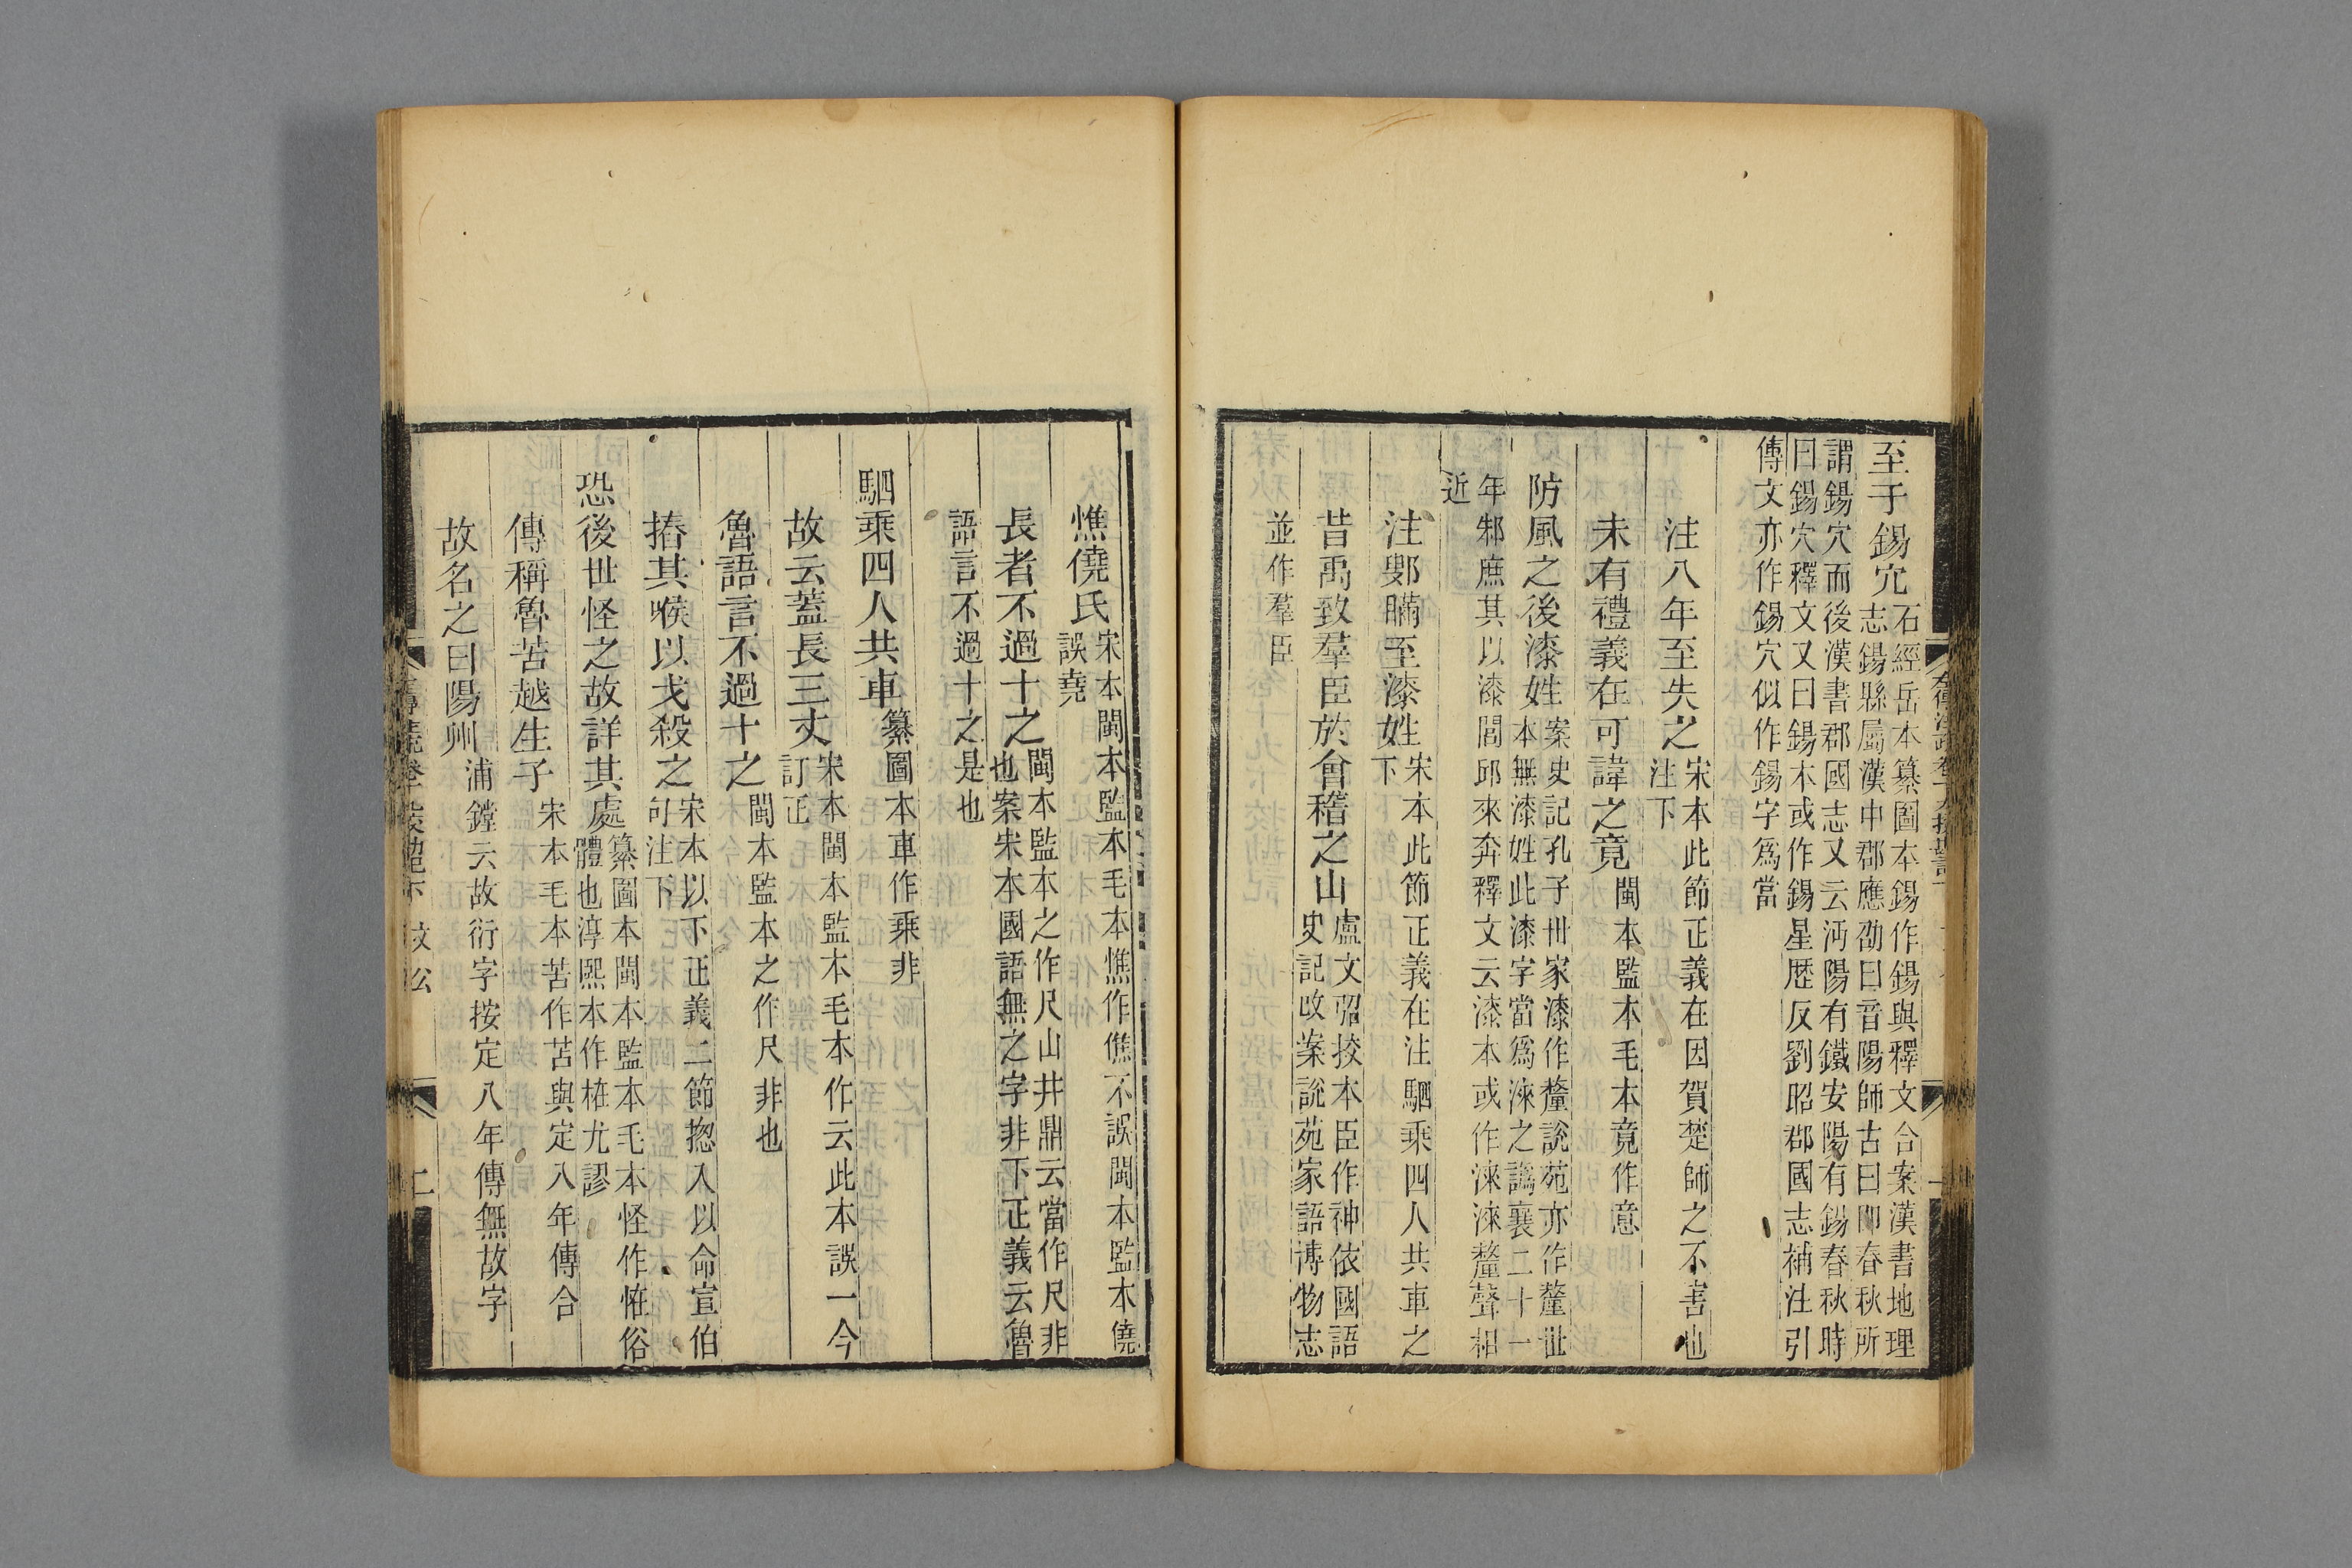 至于錫穴
石經岳本纂圖本錫作鍚與釋文合案漢書地理
志鍚縣屬漢中郡應劭曰音陽師古曰卽春秋所
謂鍚穴而後漢書郡國志又云沔陽有鐵安陽有鍚春秋時
曰鍚穴釋文又曰鍚本或作錫星歷反劉昭郡國志補注引
傳文亦作錫穴似作錫字爲當
注八年至失之
宋本此節正義在因賀楚師之不害也
注下
未有禮義在可諱之竟
閩本監本毛本竟作意
防風之後漆姓
案史記孔子世家漆作釐說苑亦作釐世
本無漆姓此漆字當爲淶之譌襄二十一
年邾庶其以漆閭邱來奔釋文云漆本或作淶淶釐聲相
近
注鄋瞞至漆姓
宋本此節正義在注駟乘四人共車之
下
昔禹致羣臣於會稽之山
盧文弨挍本臣作神依國語
史記改案說苑家語博物志
並作羣臣
憔僥氏
宋本閩本監本毛本憔作僬不誤閩本監本僥
誤堯
長者不過十之
閩本監本之作尺山井鼎云當作尺非
也案宋本國語無之字非下正義云魯
語言不過十之是也
駟乘四人共車
纂圖本車作乘非
故云蓋長三丈
宋本閩本監本毛本作云此本誤一今
訂正
魯語言不過十之
閩本監本之作尺非也
摏其喉以戈殺之
宋本以下正義二節揔入以命宣伯
句注下
恐後世怪之故詳其處
纂圖本閩本監本毛本怪作恠俗
體也淳熙本作㤬尤謬
傳稱魯苦越生子
宋本毛本苦作苫與定八年傳合
故名之曰陽州
浦鏜云故衍字按定八年傳無故字